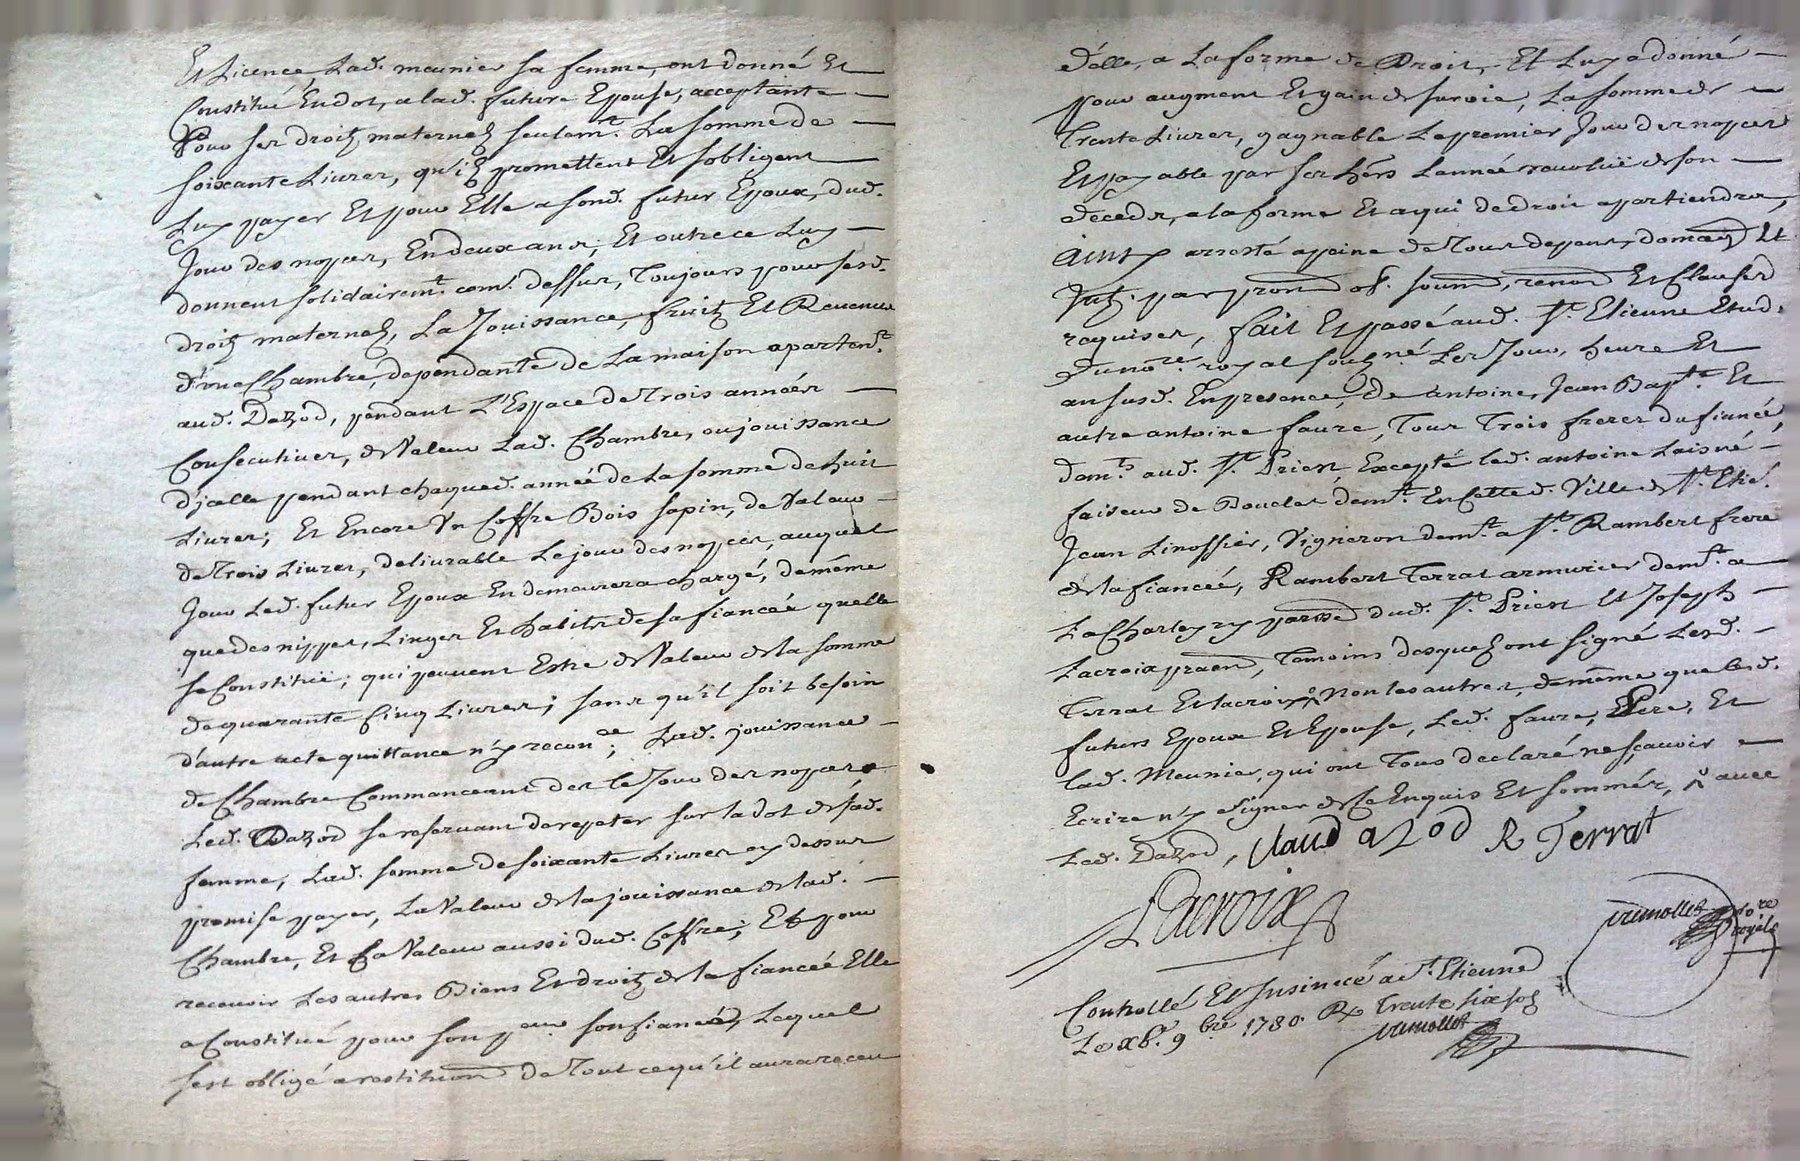 Et Licence, Lad. meunier sa femme, ont donné Et
Constitué En dot, a lad. future Epouse, acceptante
Pour ses droitz maternelz seulemt. La somme de
soixante Livres, qu'ilz promettent Et s'obligent
Luy payer Et pour Elle a sond. futur Epoux, dud.
Jour des nopces, En deux ans; Et outre ce Luy
donnent solidairemt. com. dessus, Toujours pour sesd.
droitz maternelz, La Jouissance, fruitz Et Revenus
d'une Chambre, dependante de La maison apartent.
aud. Dazod, pendant L'Espace de Trois années
Consecutives, de Valeur Lad. Chambre, ou jouissance
d'jcelle pendant chaqued. année de La somme de huit
Livres; Et Encore Un Coffre Bois sapin, de Valeur
de Trois Livres, delivrable Le jour des nopces, auquel
Jour Led. futur Epoux En demeurera chargé, de même
que des nippes, Linges Et habits de sa fiancée quelle
se Constitue; qui peuvent Estre de Valeur de la somme
de quarante Cinq Livres; sans qu'il soit besoin
d'autre acte quittance n'y recon.ce; Lad. jouissance
de Chambre Commenceant des le Jour des nopces,
Led. Dazod se reservant de repeter sur la dot de sad.
femme, Lad. somme de soixante Livres cy dessus
promise payer, La Valeur de la jouissance de lad.
Chambre, Et La Valeur aussi dud. Coffre; Et pour
recevoir Les autres Biens Et droitz de la fiancée Elle
a Constitué pour son peur son fiancé, Lequel
s'est obligé a restituon De Tout ce qu'il aura receu
d'Elle, a La forme de Droit, Et Luy a donné
pour augment Et gain de survie, La somme de
Trente Livres, gagnable Le premier Jour des nopces
Et payable par ses hers L'année revolue de son
décedz, a la forme Et a qui de droit apartiendra,
Ainsy arresté a peine de Tous depens, domages Et
Jntz. par prom ob. soum, renon Et Clauses
requises, fait Et passé aud. St. Etienne Etud.
Du nore. royal soubzné Les Jour, heure Et
an susd. En presence, De antoine, Jean Bapte. Et
autre antoine faure, Tous Trois freres du fiancé,
demts. aud. St. Priest, Excepté led. antoine Laisné
faiseur de Boucles demt. En Cette d. Ville de St. Etie.
Jean Linossier, Vigneron demt. a St. Rambert frere
de la fiancée, Rambert Terrat armurier demt. a
La Charleyry parsse dud. St. Priest Et Joseph
Lacroix praen, Temoins desquelz ont signé Lesd.
Terrat Et lacroix, Non les autres, de même que lesd.
futurs Epoux Et Epouse, Led. faure, Pere, Et
lad. Meunier, qui ont Tous declaré ne sçavoir
Ecrire n'y signer de Ce Enquis Et sommés, avec
Led. Dazod, Claud azod R Terrat
Lacroix
vremollet nore royal
Controllé Et Jnsinüé a St. Etienne
Le xb. 9bre. 1730. Rx Trente six sols
vremollet